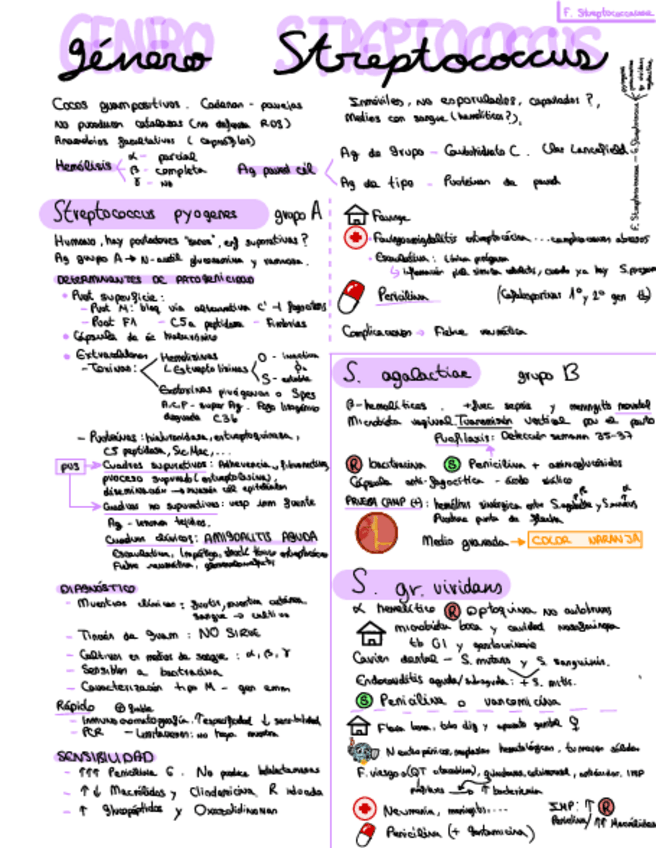 F. Streptococcaceae
GÉNERO STREPTOCOCCUS
género Streptococcus
Cocos grampositivos. Cadenas - parejas
No producen catalasas (no defensa ROS)
Anaerobios facultativos (capnófilos)
Hemólisis
α - parcial
β - completa
γ - no
Ag pared cél
Inmóviles, no esporulados, capsulados?,
Medios con sangre (hemolíticos?),
Ag de grupo - Carbohidrato C. Clas Lancefield
Ag de tipo - Proteínas de pared
Streptococcus pyogenes grupo A
Humano, hay portadores "sanos", enf supurativas?
Ag grupo A → N-acetil glucosamina y ramnosa.
DETERMINANTES DE PATOGENICIDAD
Prot superficie:
- Prot M: bloq vía alternativa C'
- Prot F1 - C5a peptidasa - Fimbrias
Cápsula de ác hialurónico
Extracelulares
- Toxinas:
Hemolisinas
Estreptolisinas
O - inactiva
S - estable
Exotoxinas pirógenas o Spes
degrada C3b
- Proteínas: hialuronidasa, estreptoquinasa,
C5 peptidasa, Sic, Mac, ...
pus
Cuadros supurativos: Adherencia, fibronectina,
proceso supurado (estreptolisina),
diseminación → invasión cél epiteliales
Cuadros no supurativos: resp inm frente
Ag - lesiona tejidos.
Cuadros clínicos: AMIGDALITIS AGUDA
Escarlatina, Impétigo, shock tóxico estreptocócico
Fiebre reumática, glomerulonefritis
DIAGNÓSTICO
- Muestras clínicas: frotis, muestra cutánea,
sangre → cultivo
- Tinción de Gram: NO SIRVE
- Cultivos en medios de sangre: α, β, γ
- Sensibles a bacitracina
- Caracterización tipo M - gen emm
Rápido
- Inmunocromatografía. ↑especificidad ↓ sensibilidad
- PCR - Limitaciones: no haya muestra
SENSIBILIDAD
- ↑↑↑ Penicilina G. No produce betalactamasas
- ↑↓ Macrólidos y Clindamicina. R inducida
- ↑ glucopéptidos y Oxazolidinonas
Faringe
Faringoamigdalitis estreptocócica ... complicaciones abscesos
Escarlatina:
Penicilina
(Cefalosporinas 1º y 2º gen)
Complicaciones → Fiebre reumática
S. agalactiae grupo B
β-hemolíticos. +frec sepsis y meningitis neonatal
Microbiota vaginal. Transmisión vertical por el parto
Profilaxis: Detección semana 35-37
R bacitracina S Penicilina + aminoglucósidos
Cápsula anti-fagocítica - ácido siálico
PRUEBA CAMP (+): hemólisis sinérgica entre S. agalactiae y S. aureus
Positiva punta de flecha
Medio granada → COLOR NARANJA
S. gr. viridans
α hemolítico R optoquina No autolisis
microbiota boca y cavidad nasofaríngea
tb GI y genitourinario
Caries dental - S. mutans y S. sanguinis.
Endocarditis aguda/subaguda: + S. mitis.
S Penicilina o vancomicina
Flora boca, tubo dig y aparato genital ♀
Neutropénicos, neoplasias hematológicas, tumores sólidos
↑ bacteriemia
Neumonía, meningitis...
Penicilina (+ Gentamicina)
IMP: ↑ R
Penicilina/ ↑↑ Macrólidos